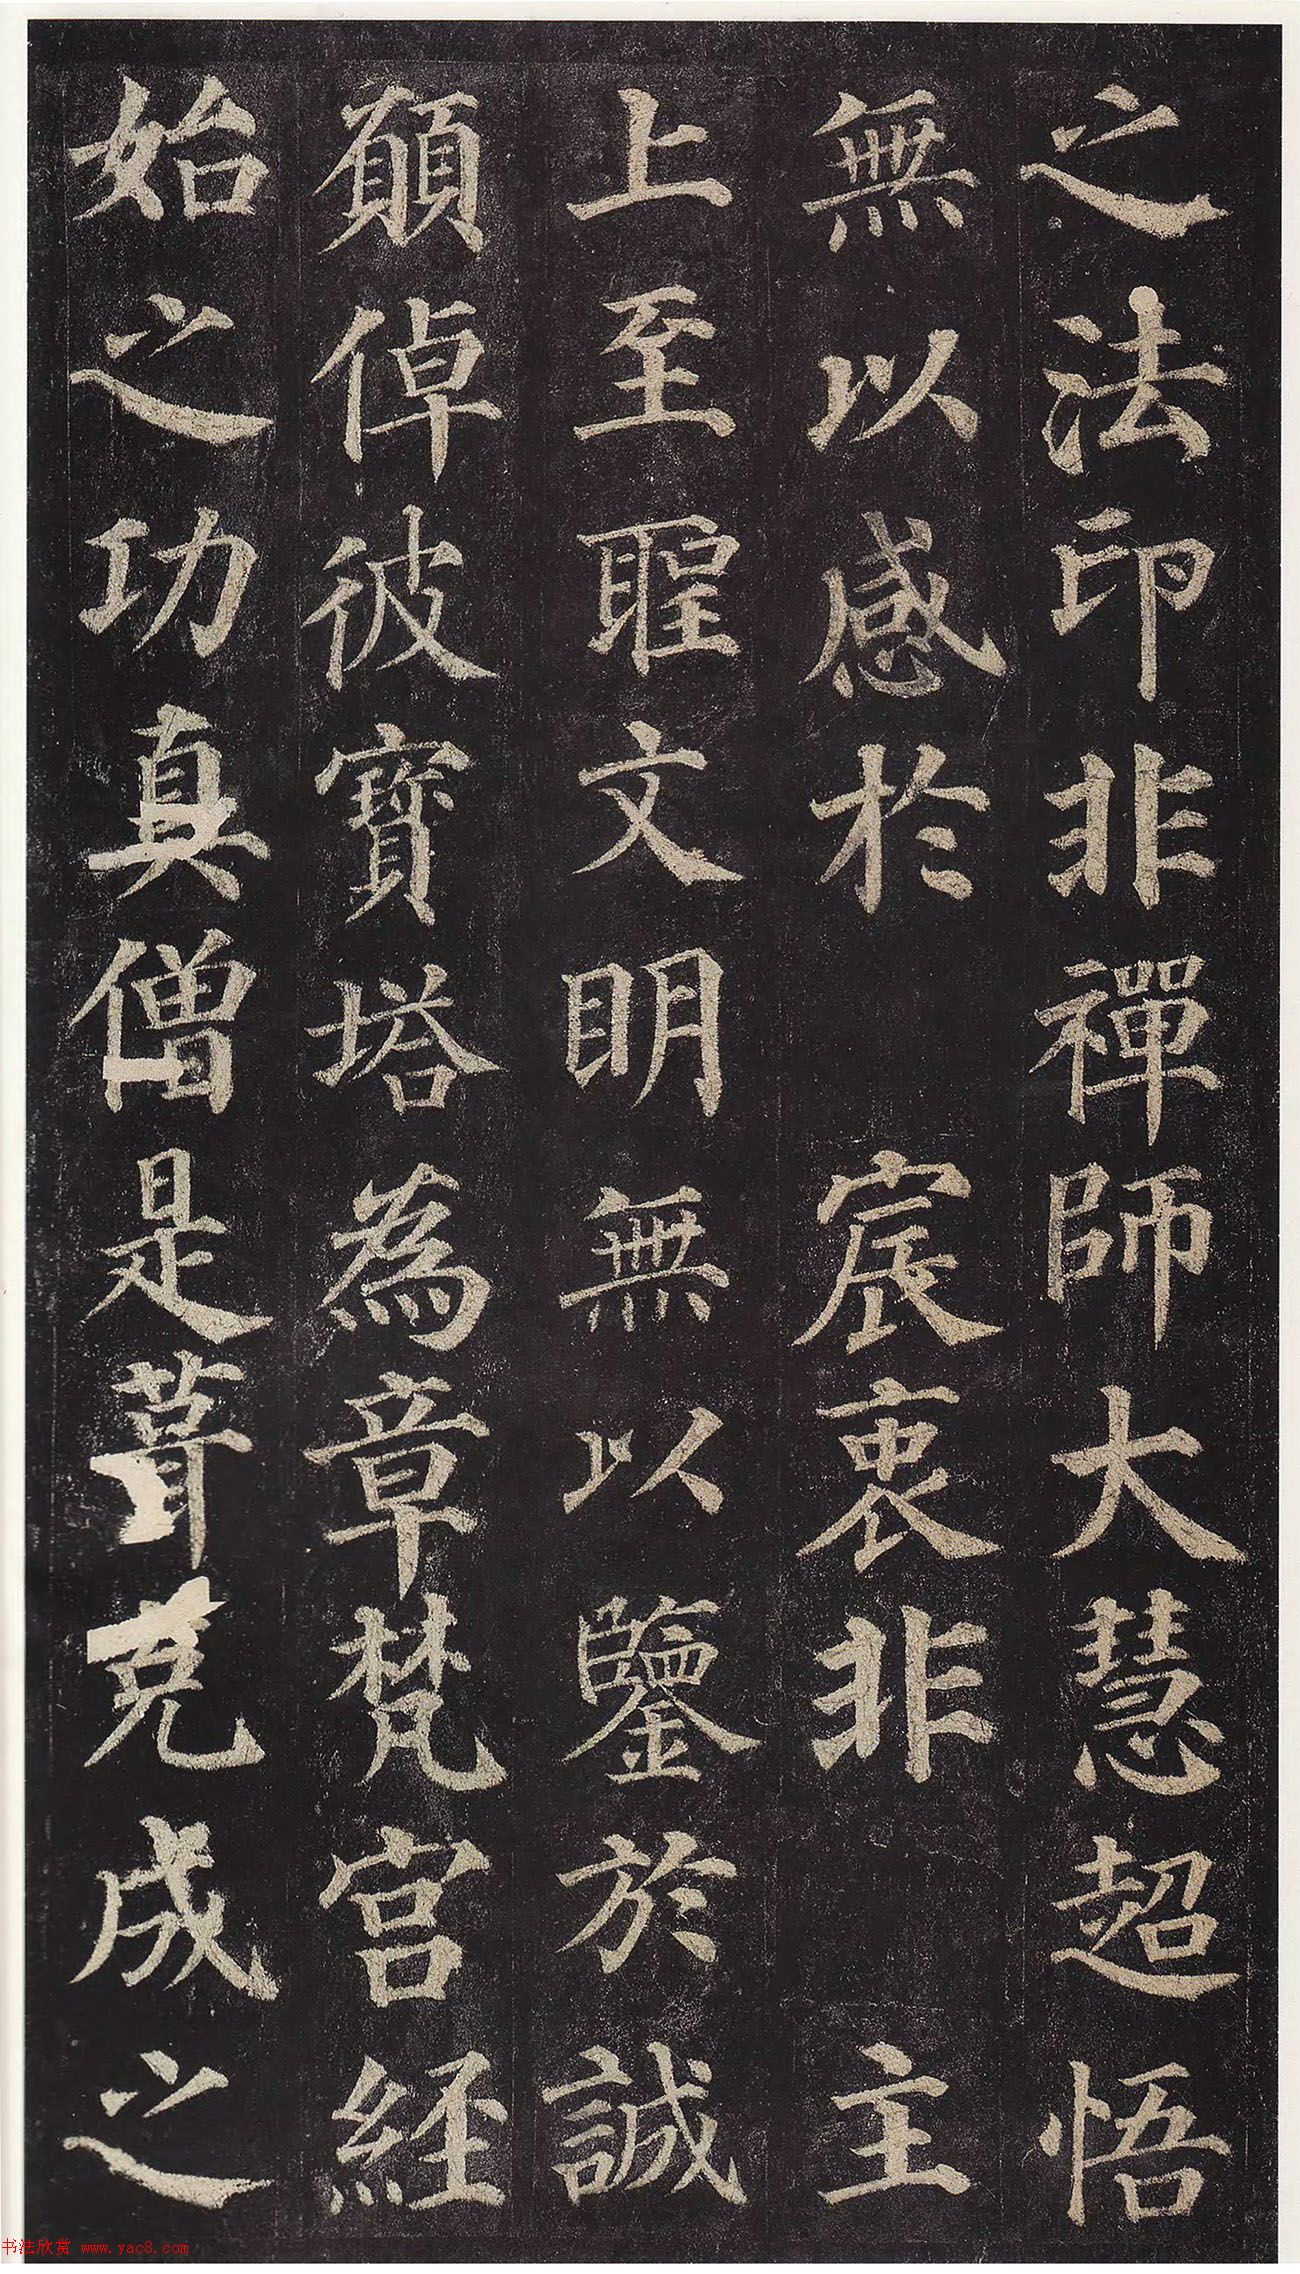 之法印非禪師大慧超悟
無以感於　宸衷非　主
上至聖文明無以鑒於誠
願倬彼寶塔為章梵宮經
始之功真僧是葺克成之
书法欣赏 www.yac8.com